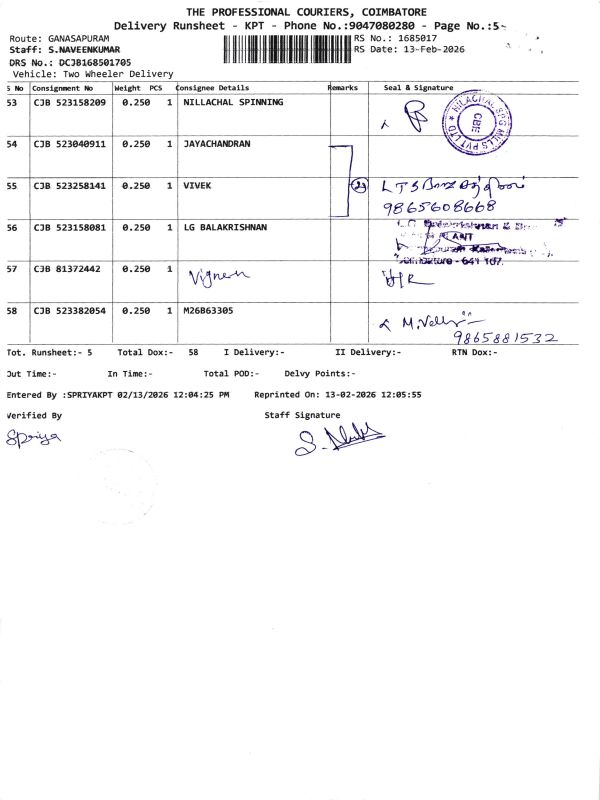 THE PROFESSIONAL COURIERS, COIMBATORE
Delivery Runsheet - KPT - Phone No.:9047080280 - Page No.:5
Route: GANASAPURAM
RS No.: 1685017
Staff: S.NAVEENKUMAR
RS Date: 13-Feb-2026
DRS No.: DCJB168501705
Vehicle: Two Wheeler Delivery
S No Consignment No Weight PCS Consignee Details Remarks Seal & Signature
53 CJB 523158209 0.250 1 NILLACHAL SPINNING
NILACHAL SPG MILLS PVT LTD * CBE
54 CJB 523040911 0.250 1 JAYACHANDRAN
55 CJB 523258141 0.250 1 VIVEK
9865608668
56 CJB 523158081 0.250 1 LG BALAKRISHNAN
Coimbatore - 641 107.
57 CJB 81372442 0.250 1 Vignesh
58 CJB 523382054 0.250 1 M26B63305
9865881532
Tot. Runsheet:- 5 Total Dox:- 58 I Delivery:- II Delivery:- RTN Dox:-
Out Time:- In Time:- Total POD:- Delvy Points:-
Entered By :SPRIYAKPT 02/13/2026 12:04:25 PM Reprinted On: 13-02-2026 12:05:55
Verified By Staff Signature
Spriya